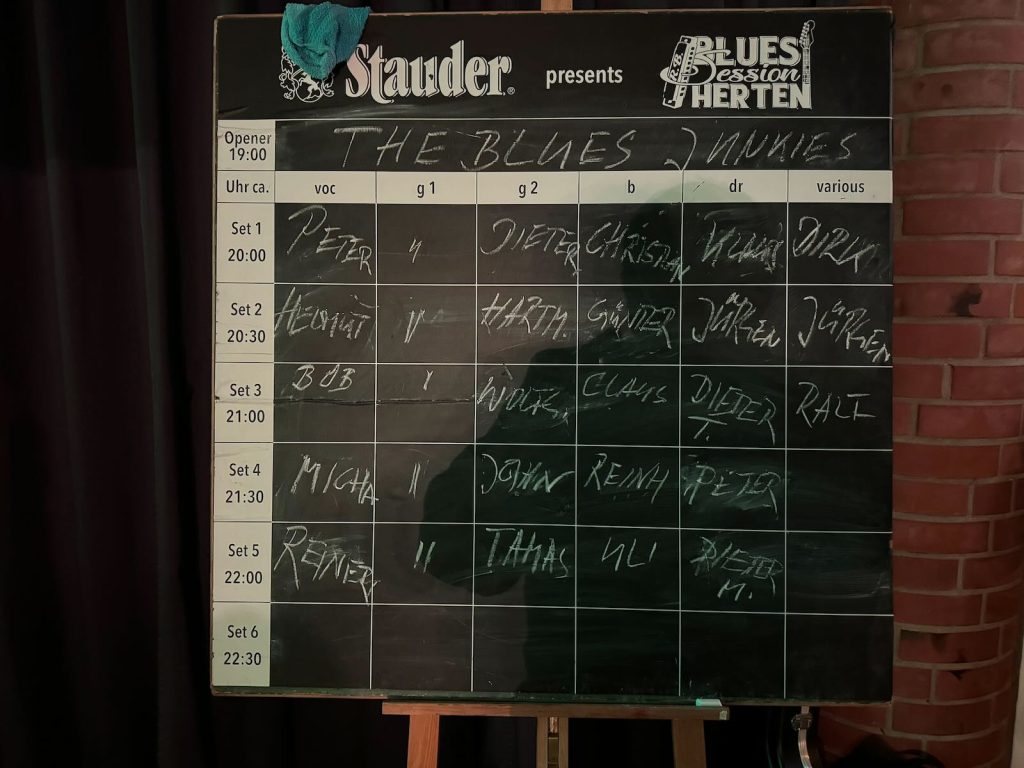 Stauder® presents BLUES Session HERTEN
Opener 19:00 THE BLUES JUNKIES
Uhr ca. voc g 1 g 2 b dr various
Set 1 20:00 PETER " DIETER CHRISTIAN DIRK
Set 2 20:30 HELMUT " HARTM. GÜNTER JÜRGEN JÜRGEN
Set 3 21:00 BOB " WOLFG. CLAUS DIETER T. RALF
Set 4 21:30 MICHA " JOHN REINH PETER
Set 5 22:00 REINER " TAMAS ULI DIETER M.
Set 6 22:30